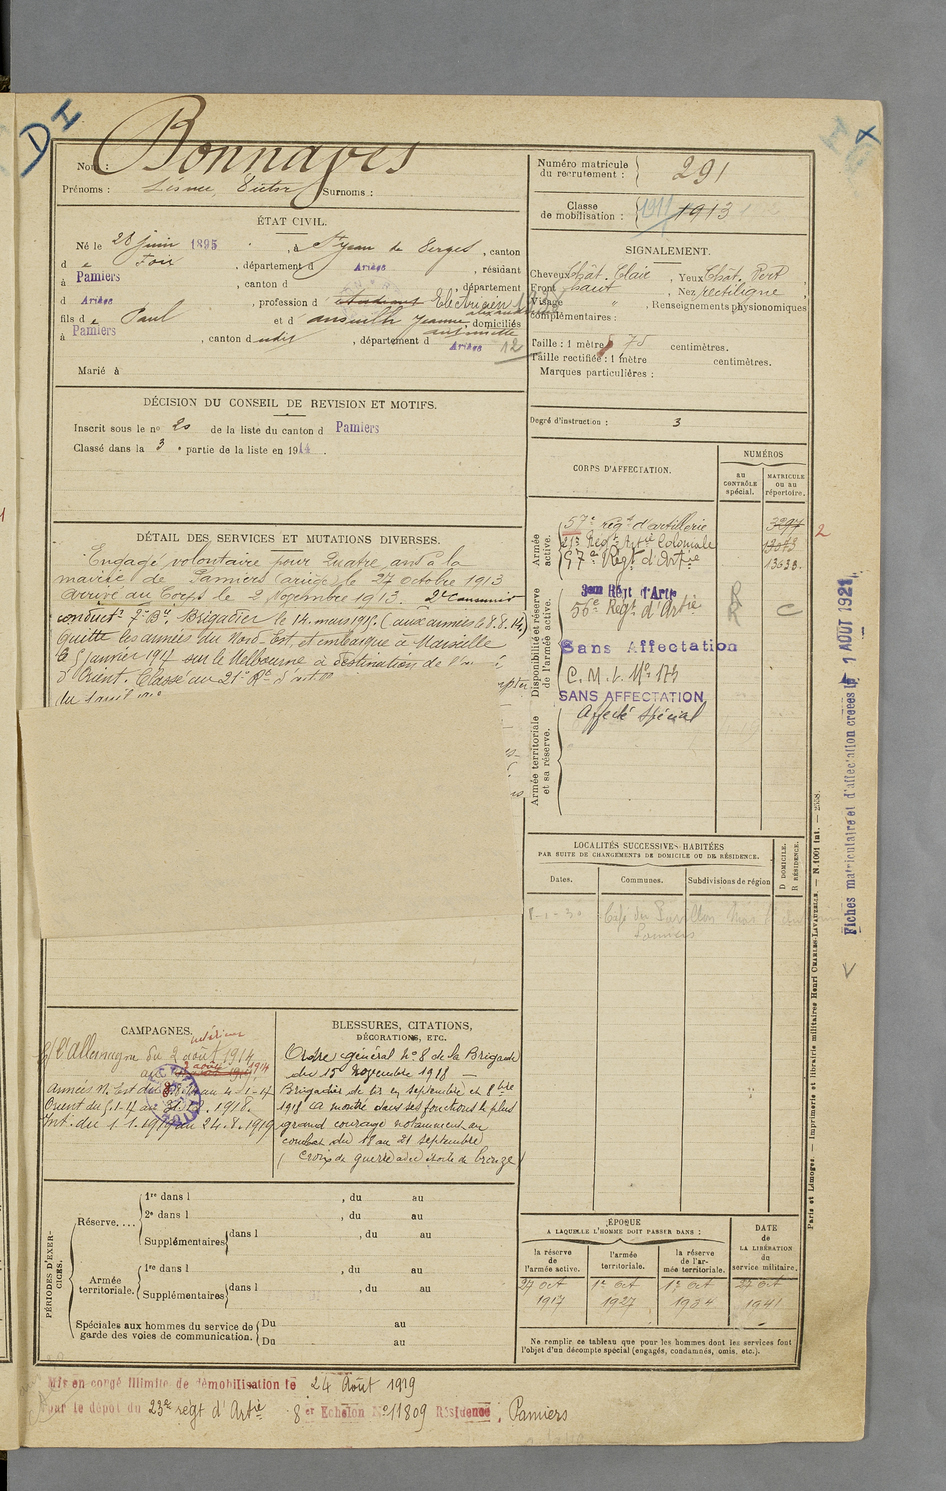 DI
Nom : Bonnayes
Prénoms : Désiré, Victor Surnoms :
Numéro matricule du recrutement : 291
Classe de mobilisation : 1911 1913
ÉTAT CIVIL.
Né le 28 juin 1895, à St Jean de Verges, canton
de Foix, département d Ariège, résidant
à Pamiers, canton d , département
d Ariège, profession d étudiant Electricien
fils de Paul et d Jeanne, domiciliés
à Pamiers, canton dudit, département d Ariège 12
Marié à
SIGNALEMENT.
Cheveux Chât. Clair, Yeux Chât. Vert
Front haut, Nez rectiligne
Visage " , Renseignements physionomiques
complémentaires :
Taille : 1 mètre 75 centimètres.
Taille rectifiée : 1 mètre centimètres.
Marques particulières :
Degré d'instruction : 3
DÉCISION DU CONSEIL DE REVISION ET MOTIFS.
Inscrit sous le nº 20 de la liste du canton d Pamiers
Classé dans la 3e partie de la liste en 1914.
DÉTAIL DES SERVICES ET MUTATIONS DIVERSES.
Engagé volontaire pour Quatre ans à la
mairie de Pamiers (Ariège) le 27 octobre 1913
Arrivé au Corps le 2 Novembre 1913. 2e Canonnier
conduct. 7e Bie. Brigadier le 14 mars 1915. (aux armées le 8.8.14)
Quitte les armées du Nord-Est, et embarque à Marseille
le 5 janvier 1917 sur le Melbourne à destination de l'
d'Orient. Classé au 21e Rt d'art
du
CORPS D'AFFECTATION.
NUMÉROS
au CONTRÔLE spécial.
MATRICULE ou au répertoire.
Armée active.
57e régt d'artillerie 3297
21e Régt Artie Coloniale
57e Régt d'Artie 13638
2
Disponibilité et réserve de l'armée active.
3eme Régt d'Artie R
56e Régt d'Artie R C
Sans Affectation
C. M. I. No 173
SANS AFFECTATION
Armée territoriale et sa réserve.
Affecté Spécial
Fiches matriculaire et d'affectation créées le 1 AOUT 1921
LOCALITÉS SUCCESSIVES HABITÉES
PAR SUITE DE CHANGEMENTS DE DOMICILE OU DE RÉSIDENCE.
Dates. Communes. Subdivisions de région
D DOMICILE. R RÉSIDENCE.
8-1-30 Café du Pavillon
Pamiers
CAMPAGNES.
C/ l'Allemagne du 2 août 1914
Intérieur
au 7 août 1914
Armées N. Est du 8.8.14 au 4-1-17
Orient du 5.1.17 au 31.12.1918.
Int. du 1.1.1919 au 24.8.1919
BLESSURES, CITATIONS,
DÉCORATIONS, ETC.
Ordre général No 8 de la Brigade
du 15 Novembre 1918 —
Brigadier de tir en septembre et 8bre
1918 a montré dans ses fonctions le plus
grand courage notamment au
combat du 18 au 21 septembre
Croix de guerre avec étoile de bronze
PÉRIODES D'EXERCICES.
Réserve....
1re dans l , du au
2e dans l , du au
Supplémentaires dans l , du au
Armée territoriale.
1re dans l , du au
Supplémentaires dans l , du au
Spéciales aux hommes du service de garde des voies de communication.
Du au
Du au
ÉPOQUE
A LAQUELLE L'HOMME DOIT PASSER DANS :
la réserve de l'armée active.
l'armée territoriale.
la réserve de l'armée territoriale.
DATE de LA LIBÉRATION du service militaire.
27 Oct 1917
1er Oct 1927
1er Oct 1934
27 Oct 1941
Ne remplir ce tableau que pour les hommes dont les services font
l'objet d'un décompte spécial (engagés, condamnés, omis, etc.).
Paris et Limoges. — Imprimerie et librairie militaires Henri CHARLES-LAVAUZELLE. — N.1001 int. — 2558.
Mis en congé illimité de démobilisation le 24 Août 1919
par le dépôt du 23e régt d'Artie 8er Echelon No 11809 Résidence, Pamiers